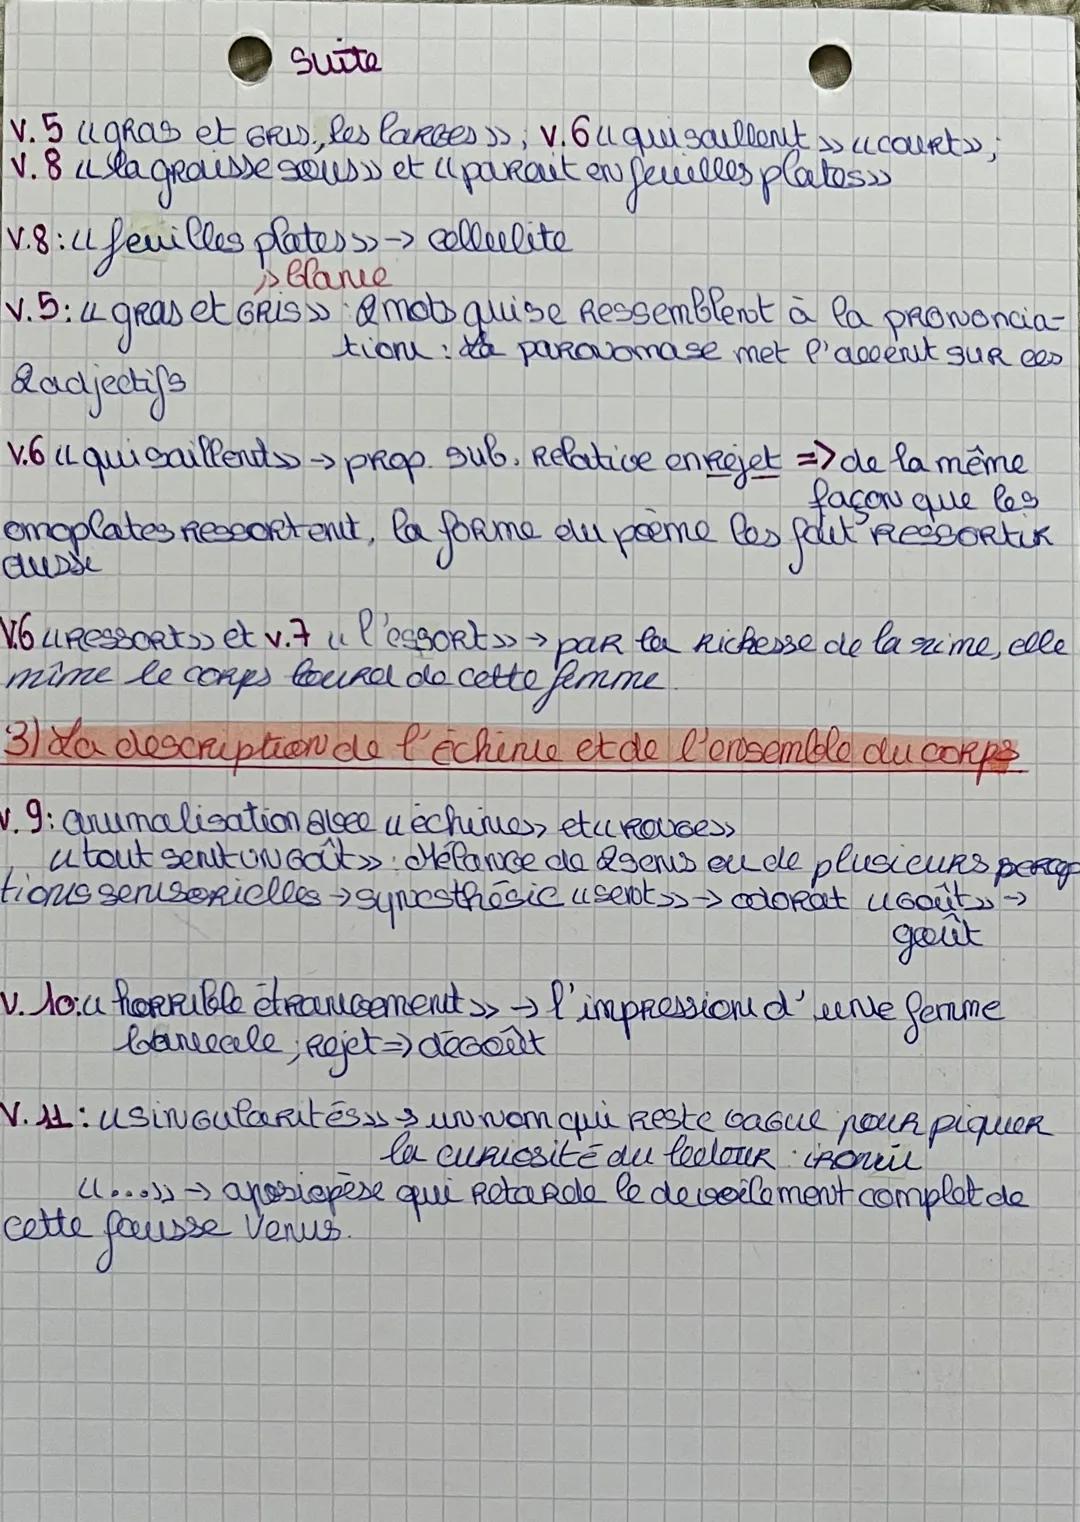 Suite
V.5 « gras et GRIS, les larges » ; V.6 « qui saillent » « court » ;
V.8 « la graisse sous » et « parait en feuilles plates »
V.8 : « feuilles plates » → cellulite
V.5 : « gras et GRIS » : 2 mots qui se Ressemblent à la prononcia-
tion : la paronomase met l'accent sur ces
2 adjectifs
V.6 « qui saillent » → prop. sub. Relative en Rejet => de la même
façon que les
omoplates Ressortent, la forme du poème les fait RESSORTIR
aussi
V.6 « RESSORT » et v.7 « l'essort » → par la Richesse de la rime, elle
mime le corps lourd de cette femme.
3) La description de l'échine et de l'ensemble du corps
V.9 : animalisation avec « échine » et « ROUGE »
« tout sent un Goût » : Mélange de 2 sens ou de plusieurs percep
tions sensorielles → synesthésie « sent » → odorat « Goût » →
goût
V.10 : « horrible étrangement » → l'impression d'une femme
bancale ; Rejet => dégoût
V.11 : « singularités » → un nom qui Reste vague pour piquer
la curiosité du lecteur : ironie
« ... » → aposiopèse qui Retarde le devoilement complet de
cette fausse Venus.